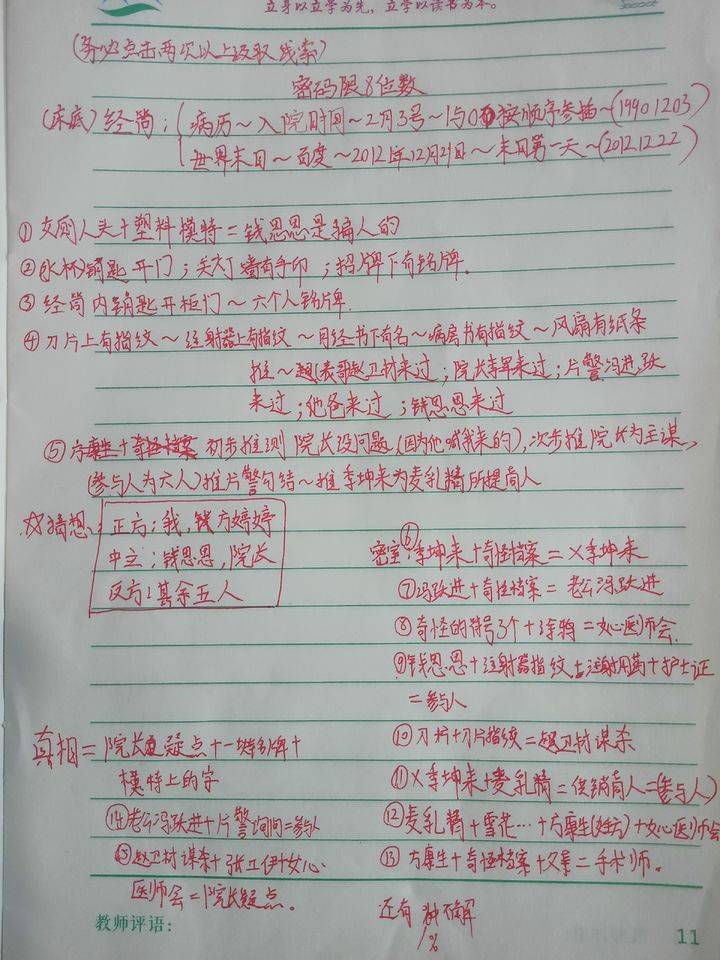 立身以立学为先，立学以读书为本。
(务必点击两次以上汲取线索)
密码限8位数
(床底)经筒：病历～入院时间～2月3号～1与0按顺序参插～(19901203)
世界末日～百度～2012年12月21日～末日第一天～(20121222)
①女厕人头+塑料模特=钱思思是骗人的
②(水杯)钥匙开门；关灯墙有手印；招牌下有铭牌.
③经筒内钥匙开柜门～六个人铭牌.
④刀片上有指纹～注射器上有指纹～月经书下有名～病房书有指纹～风扇有纸条
推～赵(表哥)赵卫材来过；院长李军来过；片警冯进跃
来过；他爸来过；钱思思来过
⑤方康生+奇怪档案 初步推测院长没问题(因为他喊我来的),次步推院长为主谋,
(参与人为六人)推片警勾结～推李坤来为麦乳精所提尚人
☆猜想：
正方：我,钱方婷婷
中立：钱思思,院长
反方：其余五人
密室：⑥李坤来+奇怪档案=×李坤来
⑦冯跃进+奇怪档案=老公冯跃进
⑧奇怪的符号3个+涂鸦=女心医师会.
⑨钱思思+注射器指纹+注射用药+护士证
=参与人
⑩刀片+刀片指纹=赵卫材谋杀
⑪×李坤来+麦乳精=促销商人=(参与人)
⑫麦乳精+雪花…+方康生(处方)+女心医师会
⑬方康生+奇怪档案+父亲=手术师。
真相=院长疑点+一块铭牌+
模特上的字
⑭老公冯跃进+片警询问=参与人
⑮赵卫材谋杀+张工伊+女心
医师会=院长疑点。
还有 独不解
1%
教师评语：
11